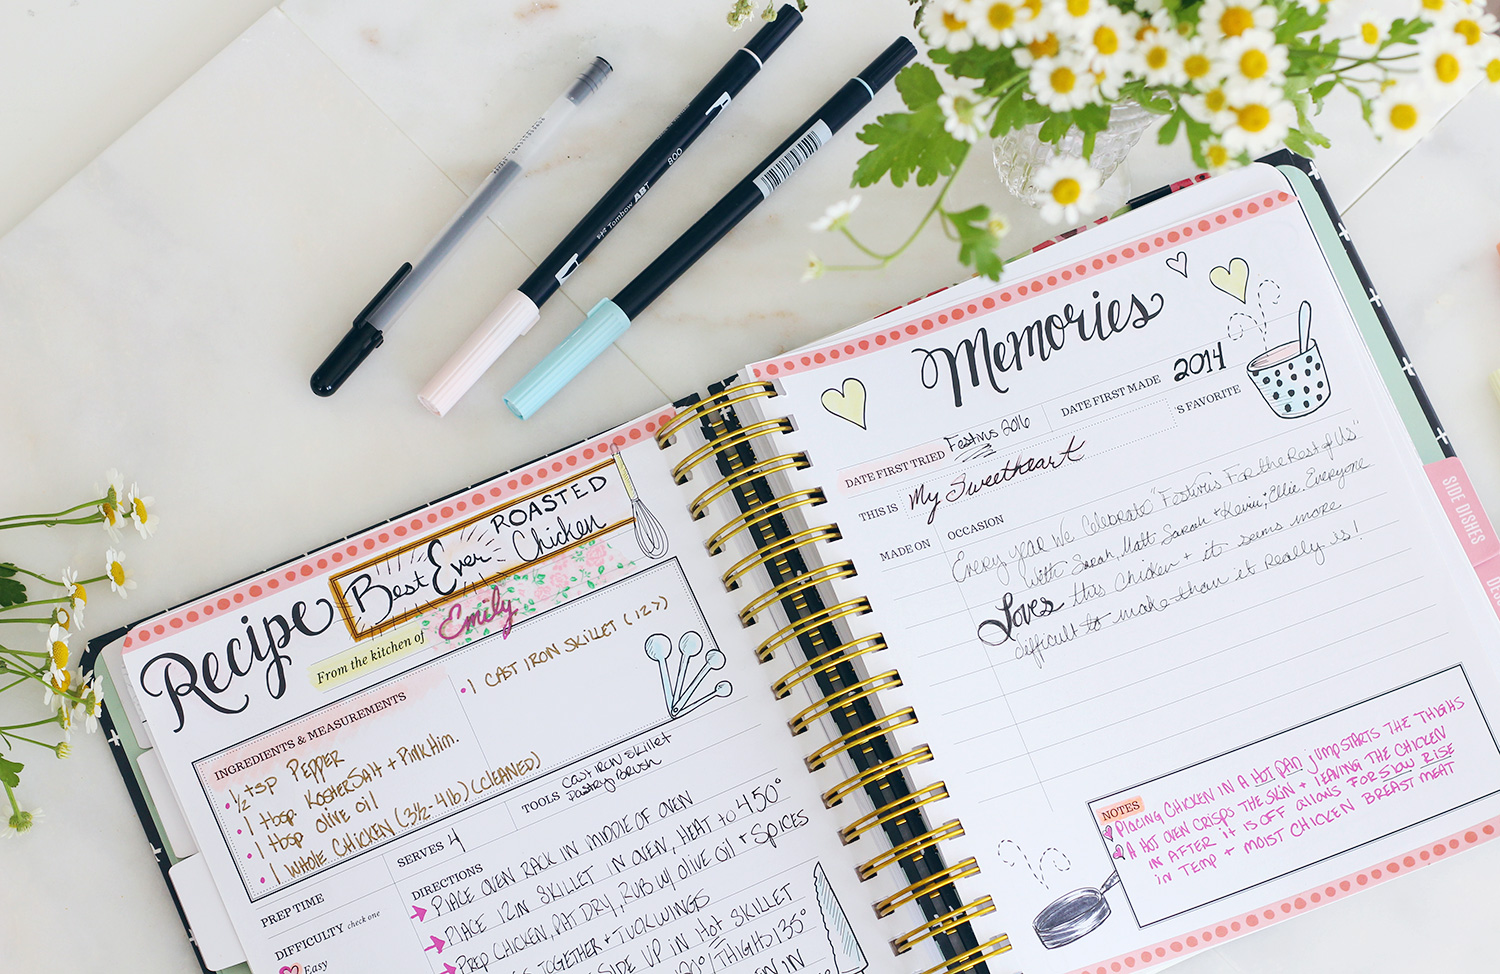 Tombow ABT
800
Recipe
Best Ever ROASTED
Chicken
From the kitchen of Emily
INGREDIENTS & MEASUREMENTS
• ½ tsp PEPPER
• 1 tbsp KosherSalt + Pink Him.
• 1 tbsp OLIVE OIL
• 1 WHOLE CHICKEN (3½-4lb) (CLEANED)
• 1 CAST IRON SKILLET (12>)
PREP TIME
SERVES 4
TOOLS CAST IRON Skillet
Pastry Brush
DIFFICULTY check one
Easy
DIRECTIONS
PLACE OVEN RACK IN MIDDLE OF OVEN
PLACE 12IN SKILLET IN OVEN, HEAT to 450°
PREP CHICKEN, PAT DRY, RUB W/ OLIVE OIL + SPICES
TOGETHER + TUCK WINGS
SIDE UP IN HOT SKILLET
THIGHS 135°
IN
Memories
DATE FIRST TRIED Festivus 2016
DATE FIRST MADE 2014
THIS IS My Sweetheart 'S FAVORITE
MADE ON
OCCASION
Every year we Celebrate "Festivus For the Rest of Us"
with Sarah, Matt, Sarah + Kevin, + Ellie. Everyone
Loves this Chicken + it seems more
difficult to make than it Really is!
SIDE DISHES
NOTES
PLACING CHICKEN IN A HOT PAN JUMPSTARTS THE THIGHS
A HOT OVEN CRISPS THE SKIN + LEAVING THE CHICKEN
IN AFTER IT IS OFF ALLOWS FOR SLOW RISE
IN TEMP + MOIST CHICKEN BREAST MEAT